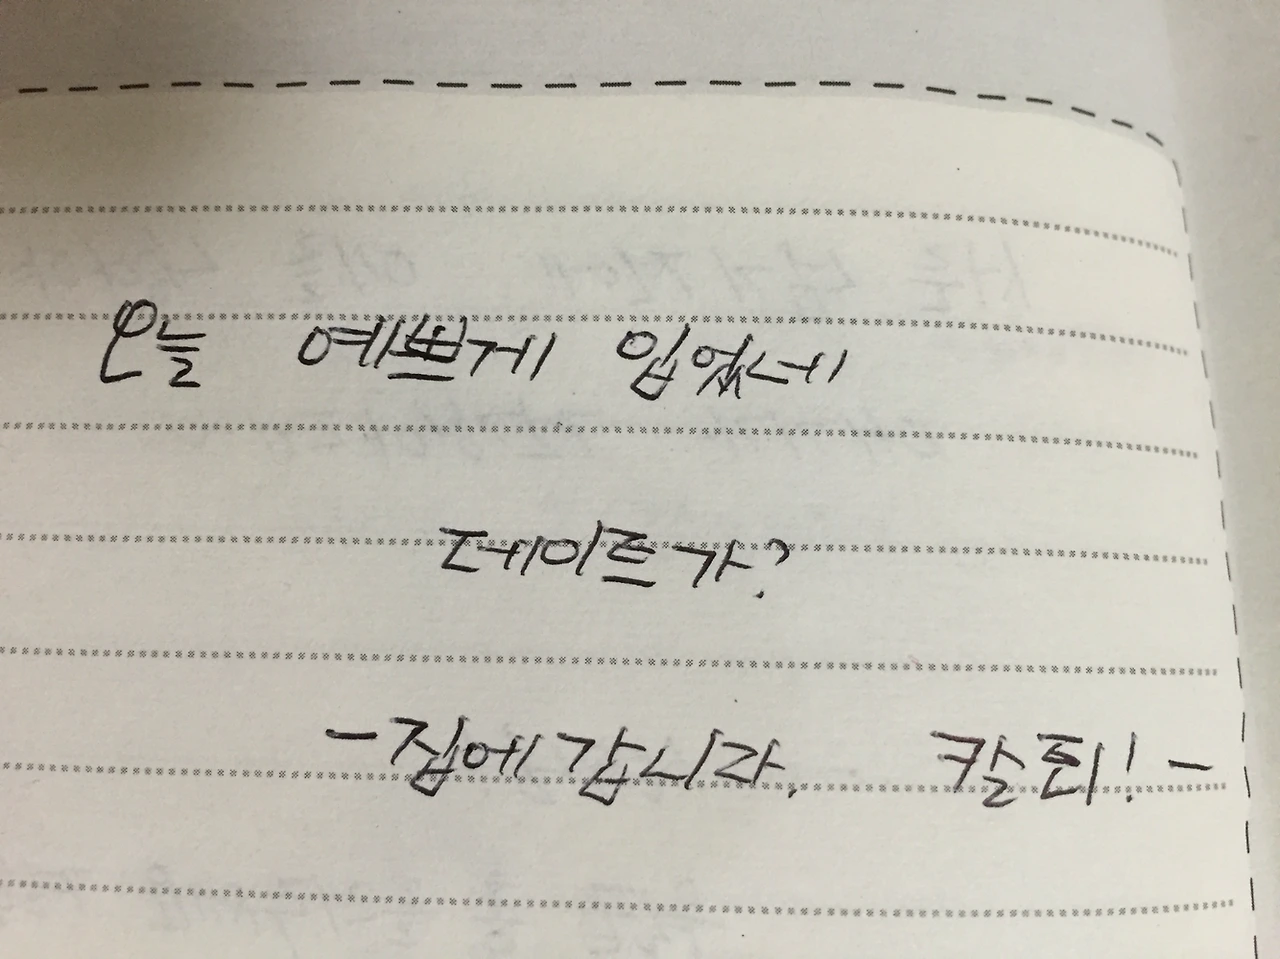 오늘 예쁘게 입었네
데이트 가?
-집에 갑니다. 칼퇴! -